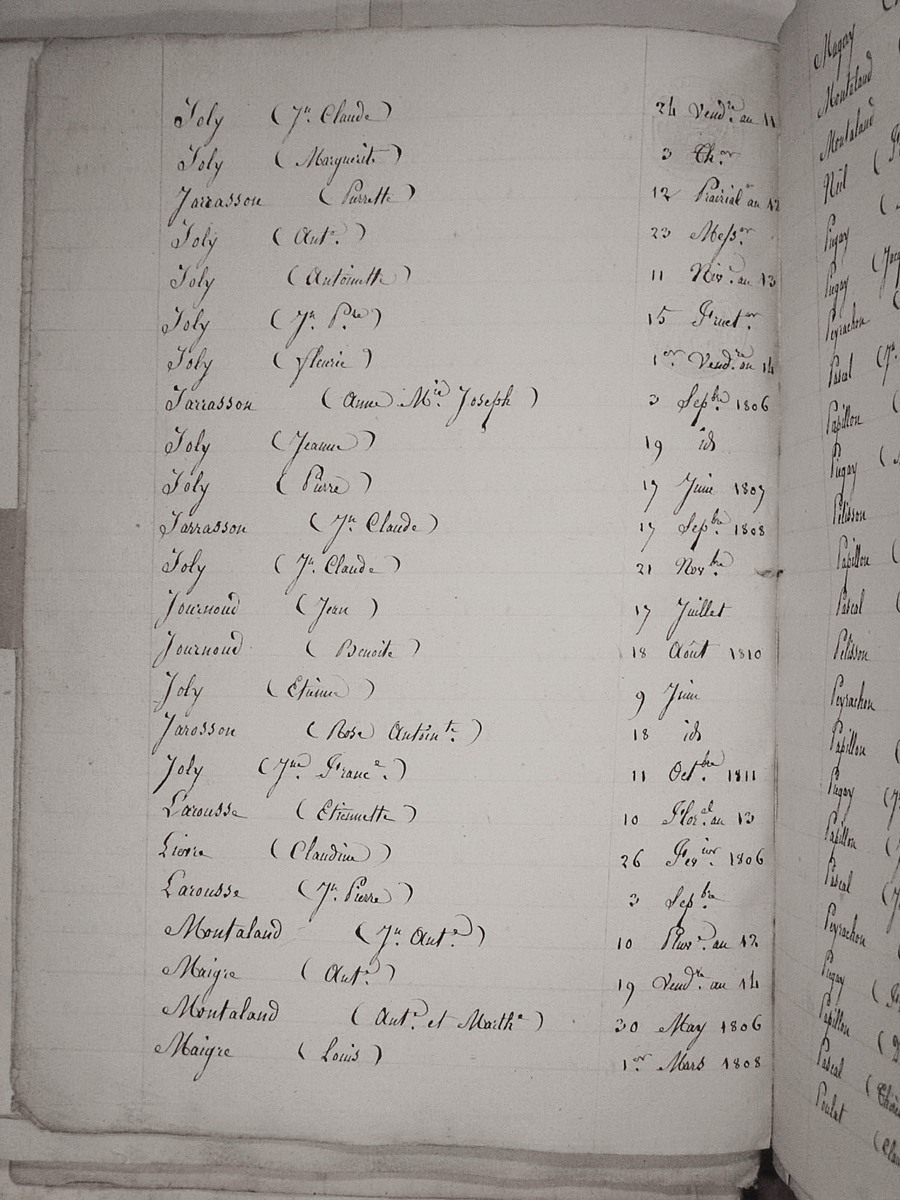 Joly (Jn. Claude) 24 Vendre. an 11
Joly (Marguerite) 3 Ther.or
Jarrasson (Pierrette) 12 Prairial an 12
Joly (Ant.e) 23 Messor
Joly (Antoinette) 11 Niv.e an 13
Joly (Jn. Pre) 15 Fruct.or
Joly (fleurie) 1er Vendre. an 14
Jarrasson (Anne Mrie Joseph) 3 Sepbre 1806
Joly (Jeanne) 19 id
Joly (Pierre) 17 Juin 1807
Jarrasson (Jn. Claude) 17 Sepbre. 1808
Joly (Jn. Claude) 21 Novbre
Journoud (Jean) 17 Juillet
Journoud (Benoite) 18 Août 1810
Joly (Etienne) 9 Juin
Jarosson (Rose Antointe.) 18 id
Joly (Jne Franc.e) 11 Octbre. 1811
Larousse (Etiennette) 10 Floral. an 13
Lievre (Claudine) 26 Fevier. 1806
Larousse (Jn. Pierre) 3 Sepbre
Montaland (Jn Ante.) 10 Pluve. an 12
Maigre (Ante.) 19 Vendre. an 14
Montaland (Ante. et Marthe) 30 May 1806
Maigre (Louis) 1er. Mars 1808
Magny
Montaland
Montaland
Niel
Pugay
Pugay
Peyrachon
Pascal
Papillon
Pugay
Pelisson
Papillon
Pascal
Pelisson
Peyrachon
Papillon
Pugay
Papillon
Pascal
Peyrachon
Pugay
Papillon
Pascal
Poulat